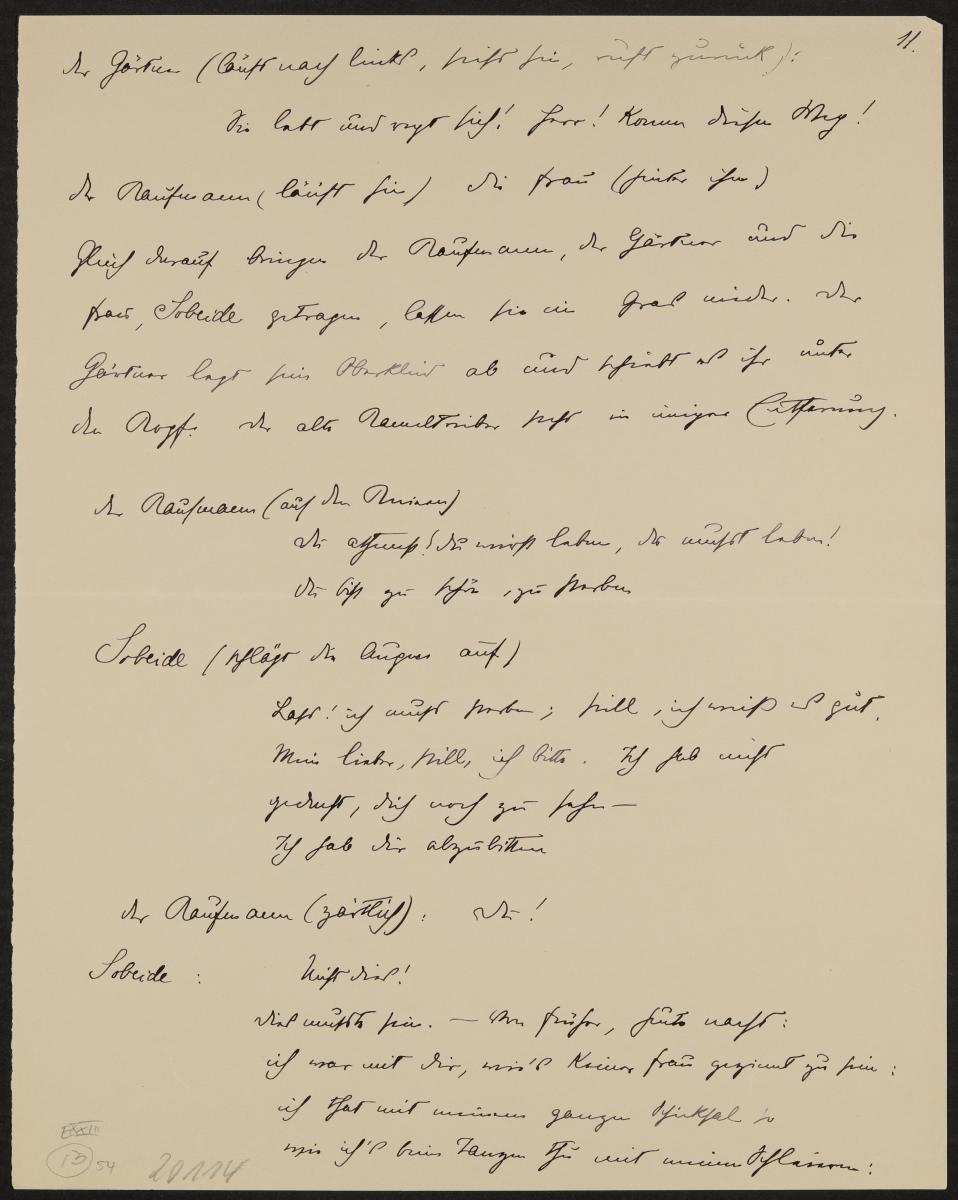 11.
der Gärtner (läuft nach links, sieht hin, ruft zurück):
Sie lebt und regt sich! Herr! Komm diesen Weg!
der Kaufmann (läuft hin) die Frau (hinter ihm)
Gleich darauf bringen der Kaufmann, der Gärtner und die
Frau, Sobeide getragen, lassen sie im Gras nieder. Der
Gärtner legt sein Oberkleid ab und schiebt es ihr unter
den Kopf. Der alte Kameeltreiber steht in einiger Entfernung.
der Kaufmann (auf den Knieen)
Du athmest! du wirst leben, du musst leben!
du bist zu schön, zu sterben
Sobeide (schlägt die Augen auf)
Lass! ich muss sterben; still, ich weiß es gut.
Mein lieber, still, ich bitte. Ich hab nicht
gedacht, dich noch zu sehn —
Ich hab dir abzubitten
der Kaufmann (zärtlich): Du!
Sobeide: Nicht dies!
dies musste sein. — Von früher, heute nacht:
ich war mit dir, wie's keiner Frau geziemt zu sein:
ich that mit meinem ganzen Schicksal so
wie ich's beim Tanzen thu mit meinen Schleiern:
54
20114